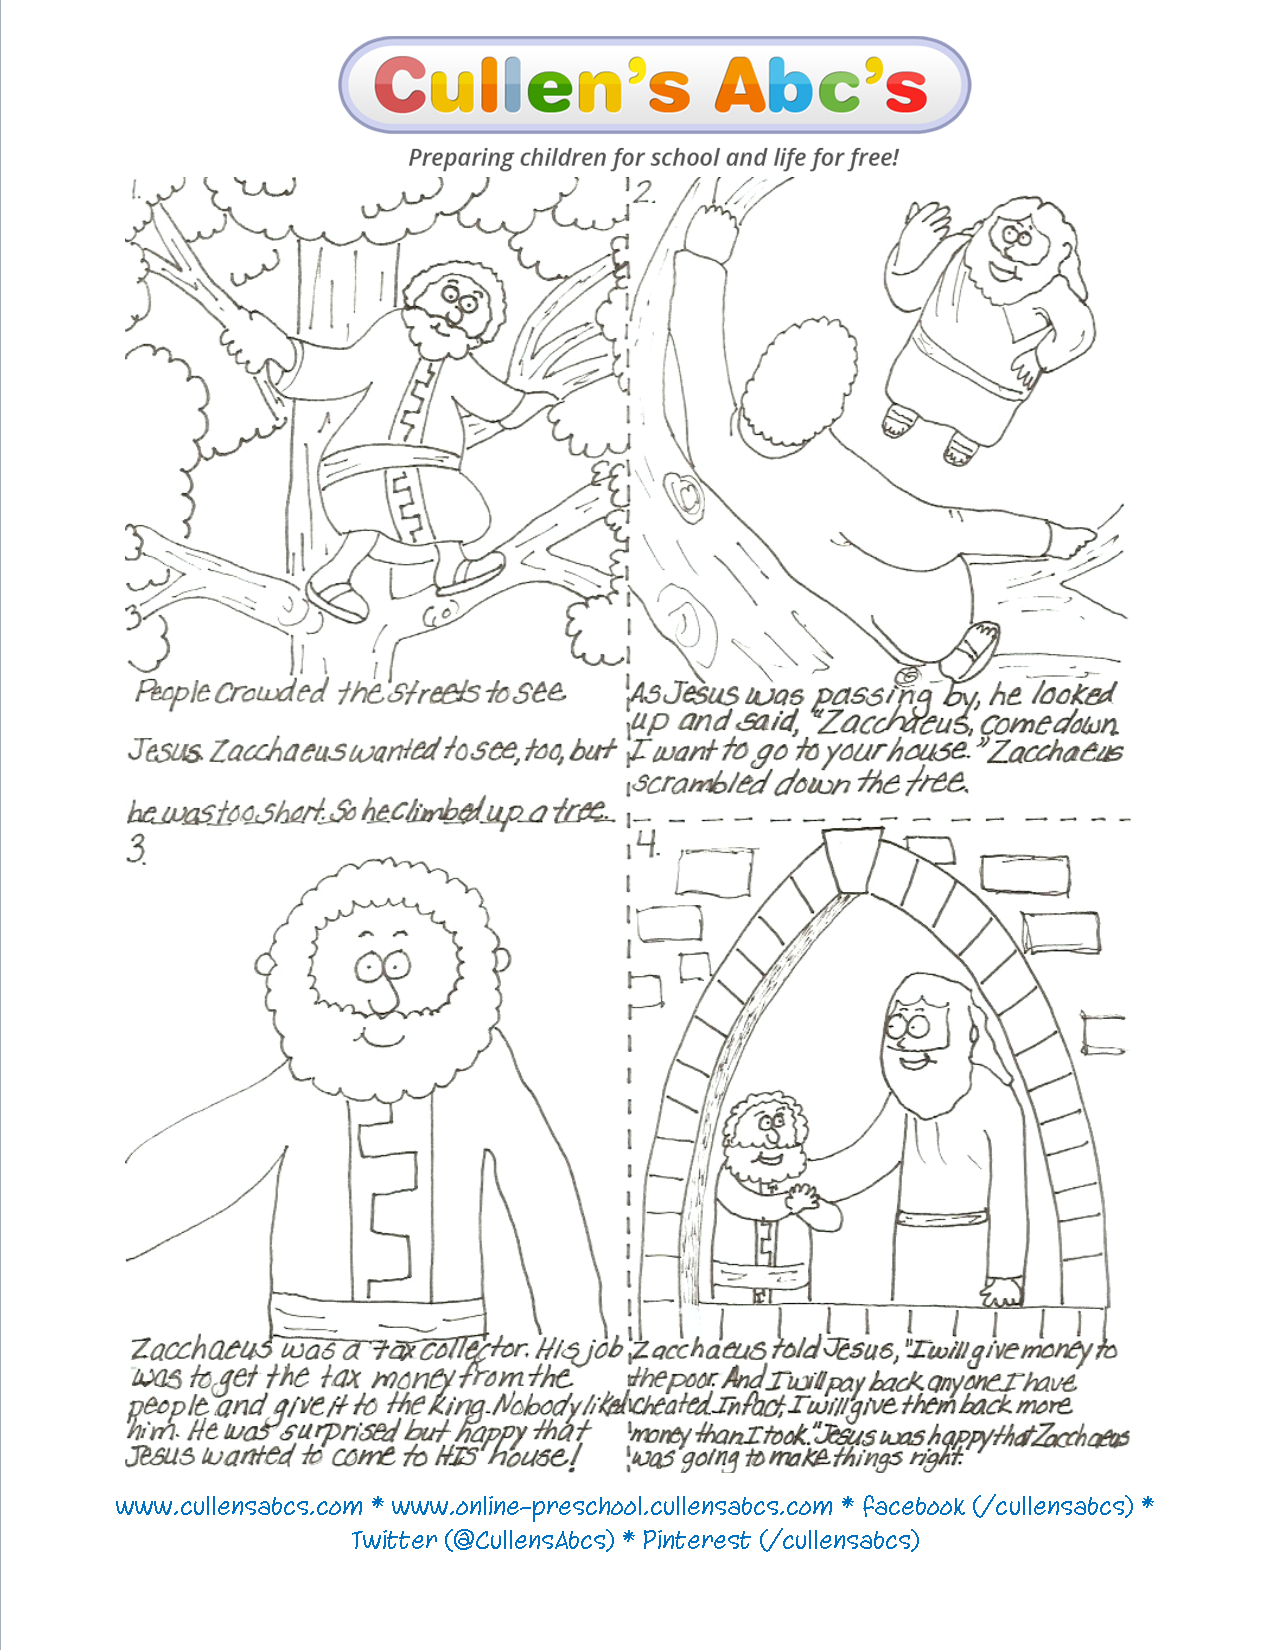 Cullen's Abc's
Preparing children for school and life for free!
1.
People crowded the streets to see
Jesus. Zacchaeus wanted to see, too, but
he was too short. So he climbed up a tree.
2.
As Jesus was passing by, he looked
up and said, "Zacchaeus, come down.
I want to go to your house." Zacchaeus
scrambled down the tree.
3.
Zacchaeus was a tax collector. His job
was to get the tax money from the
people and give it to the king. Nobody liked
him. He was surprised but happy that
Jesus wanted to come to HIS house!
4.
Zacchaeus told Jesus, "I will give money to
the poor. And I will pay back anyone I have
cheated. In fact, I will give them back more
money than I took." Jesus was happy that Zacchaeus
was going to make things right.
www.cullensabcs.com * www.online-preschool.cullensabcs.com * facebook (/cullensabcs) *
Twitter (@CullensAbcs) * Pinterest (/cullensabcs)